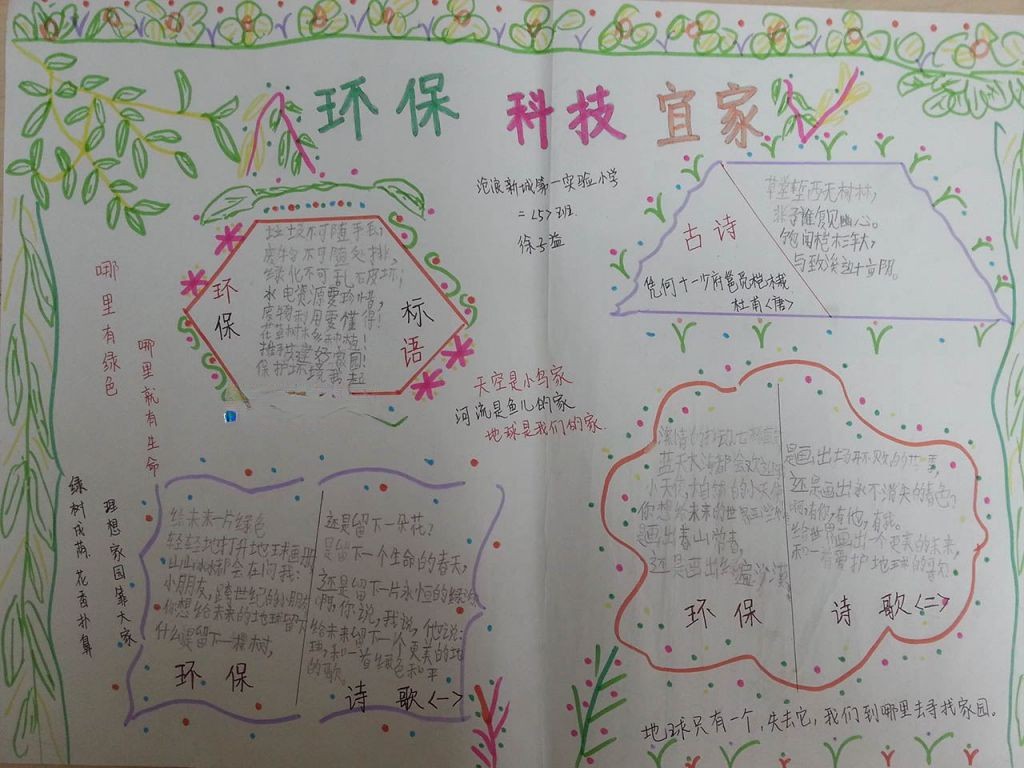 环保 科技 宜家
沧浪新城第一实验小学
二<5>班
徐子益
环保
标语
垃圾不可随手丢,
废物不可随处排,
绿化不可乱
水电资源要珍惜,
废物利用要懂得!
花草树木多种植!
保护环境我起
哪里有绿色
哪里就有生命
古诗
草堂堑西无树林,
非子谁复见幽心。
饱闻桤木三年大,
与致溪边十亩阴。
凭何十一少府邕觅桤木栽
杜甫<唐>
天空是小鸟家
河流是鱼儿的家
地球是我们的家.
绿树成荫、花香扑鼻
理想家园靠大家
给未来一片绿色
轻轻地打开地球画册
山山水水都会在问我:
小朋友,跨世纪的小朋友
你想给未来的地球留下
什么是留下一棵树,
还是留下一朵花?
是留下一个生命的春天,
还是留下片永恒的绿洲
啊,你说,我说,他说:
给未来留下一个更美的地
球,和一首绿色和平
的歌。
环保
诗歌<一>
蓝天大海都会欢迎
小天使,21世纪的小天使
你想给未来的世界画些什么
是画出青山常青,
还是画出
是画出场环败的世事,
还是画出永不消失的春色?
啊,有你,有他,有我。
给世界画出一个更美的未来,
和一首爱护地球的
环保
诗歌<二>
地球只有一个,失去它,我们到哪里去寻找家园。